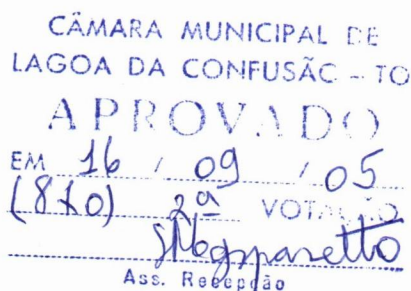 CÂMARA MUNICIPAL DE
LAGOA DA CONFUSÃO - TO
APROVADO
EM 16 / 09 / 05
(8x0) 2ª VOTAÇÃO
Ass. Recepção